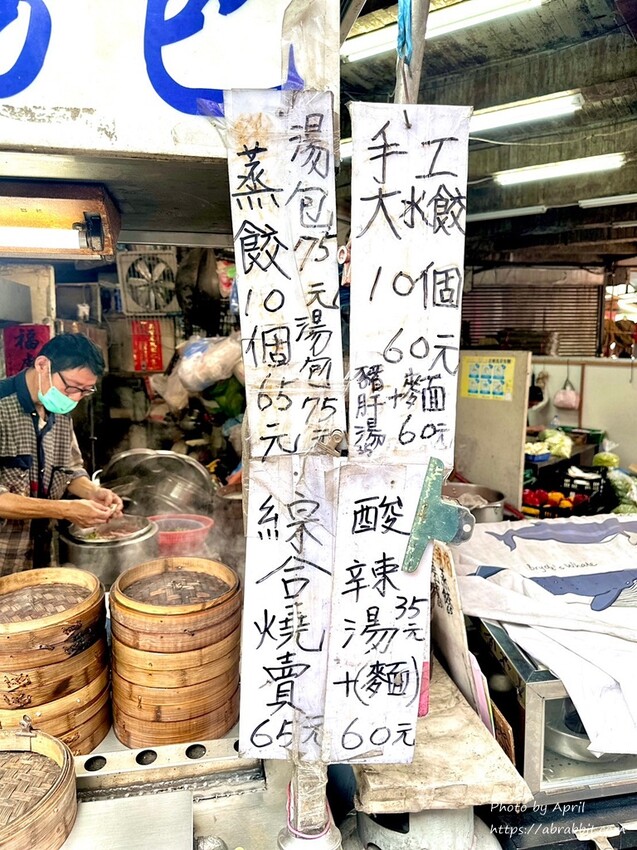 包
湯包75元
湯包75元
蒸餃10個65元
手工
大水餃
10個
60元
豬肝湯
+麵
60元
綜合燒賣
65元
酸辣湯35元
+(麵)
60元
福
Bryde's Whale
Photo by April
https://abrabbit.com